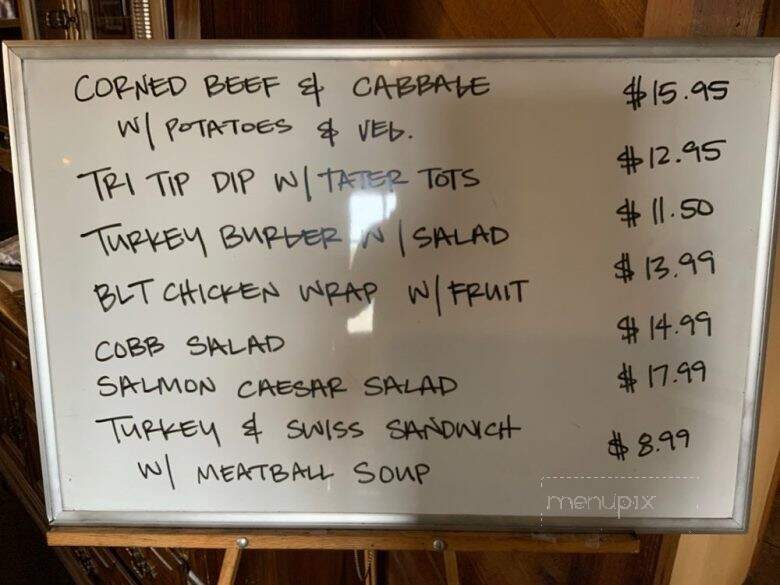 CORNED BEEF & CABBAGE $15.95
W/ POTATOES & VEG.
TRI TIP DIP W/ TATER TOTS $12.95
TURKEY BURGER W/ SALAD $11.50
BLT CHICKEN WRAP W/ FRUIT $13.99
COBB SALAD $14.99
SALMON CAESAR SALAD $17.99
TURKEY & SWISS SANDWICH $8.99
W/ MEATBALL SOUP
menupix